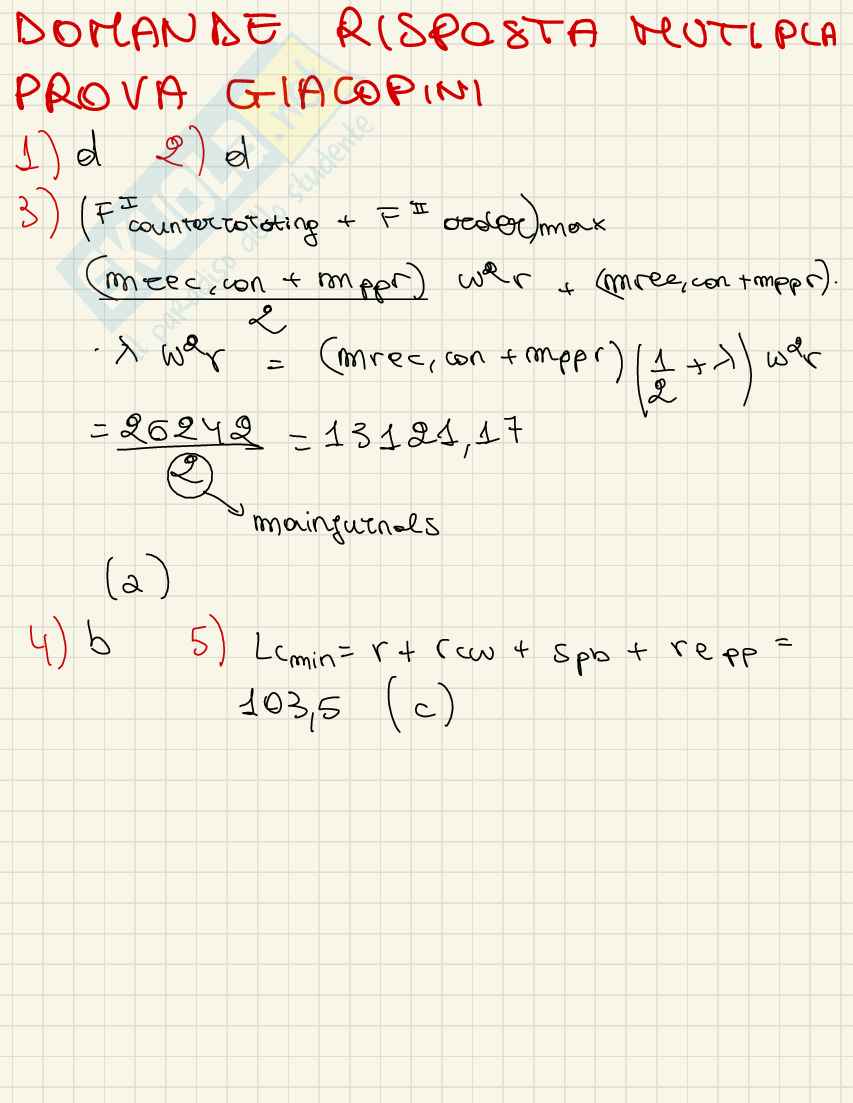 DOMANDE RISPOSTA MUTIPLA
PROVA GIACOPINI
1) d 2) d
3) (F^I counterrotating + F^II order)max
(mrec,con + mppr)/2 w²r + (mrec,con + mppr)·
· λ w²r = (mrec, con + mppr) (1/2 + λ) w²r
= 26242/2 = 13121,17
mainjurnals
(a)
4) b 5) Lcmin = r + rcw + spb + repp =
103,5 (c)
SKUOLA.net
il paradiso dello studente